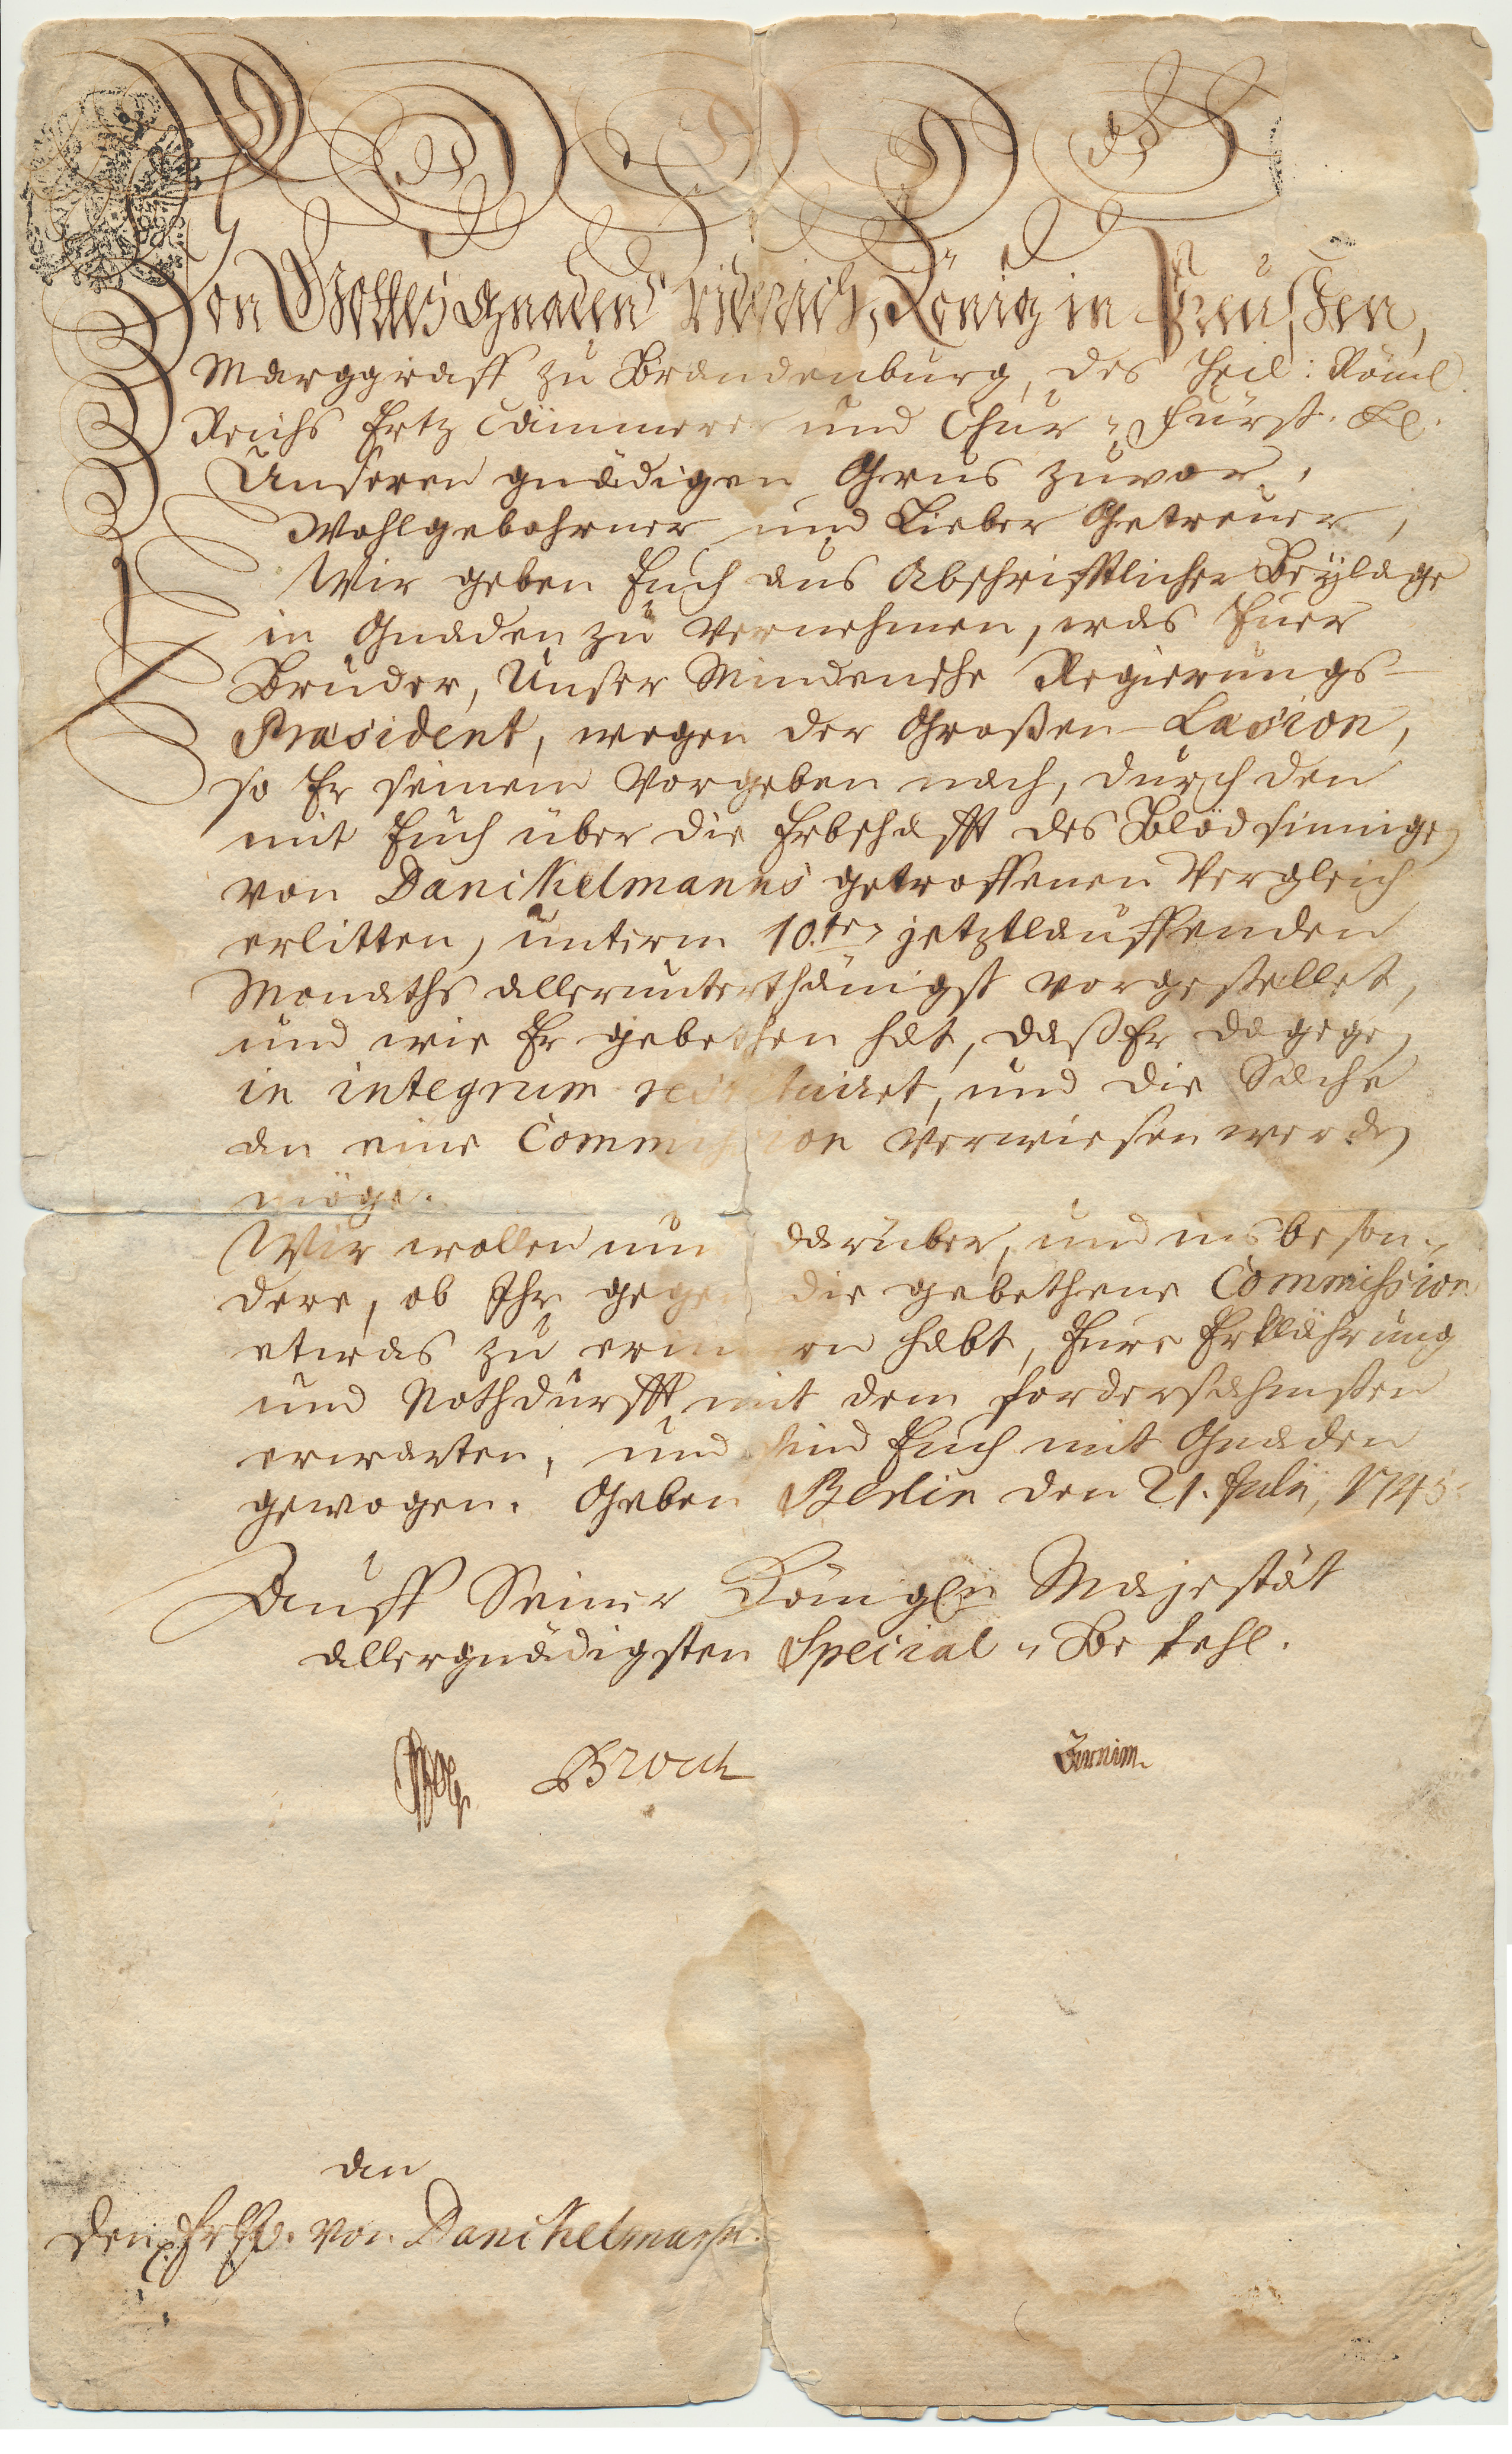 Von Gottes Gnaden Friderich, König in Preußen,
Marggraff zu Brandenburg, des Heil: Röml.
Reichs Ertz Cämmerer und Chur-Fürst. &c.
Unseren gnädigen Grus zuvor,
Wohlgebohrner und Lieber Getreuer,
Wir geben Euch aus Abschrifftlicher Beylage
in Gnaden zu vernehmen, was Euer
Bruder, Unser Mindensche Regierungs-
Præsident, wegen der Großen Læsion,
so Er seinem Vorgeben nach, durch den
mit Euch über die Erbschafft des Blödsinnigen
von Danckelmanns getroffenen Vergleich
erlitten, unterm 10.ten jetztlauffenden
Monaths allerunterthänigst vorgestellet,
und wie Er gebethen hat, daß Er dagegen
in integrum restituiret, und die Sache
an eine Commission verwiesen werden
möge.
Wir wollen nun darüber, und insbeson-
dere, ob Ihr gegen die gebethene Commission
etwas zu erinnern habt, Eure Erklährung
und Nothdurfft mit dem fordersahmsten
erwarten, und sind Euch mit Gnaden
gewogen. Geben Berlin den 21. Julii, 1745.
Auff Seiner Königln Majestät
allergnädigsten Special-Befehl.
Broich Arnim
An
den von Danckelmann.